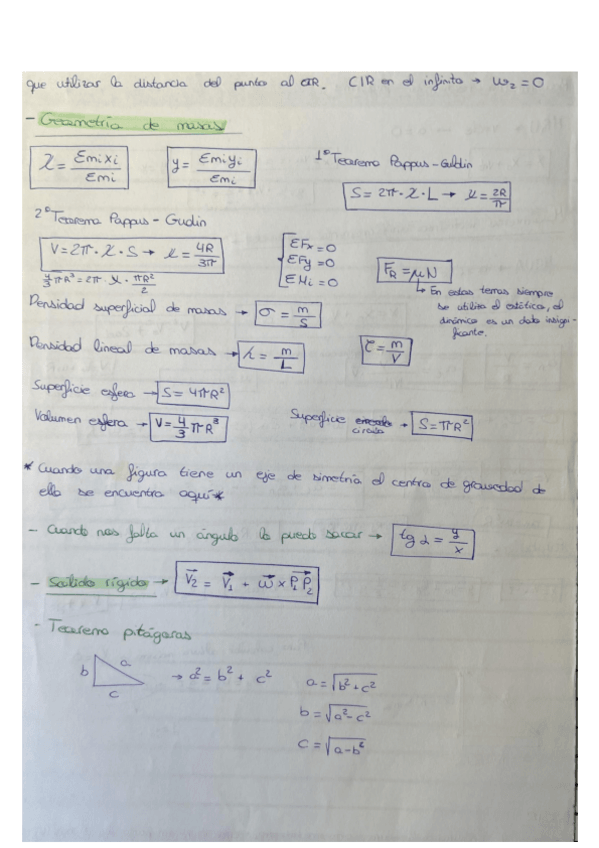 que utilizar la distancia del punto al CIR. CIR en el infinito → ω₂ = 0
- Geometría de masas
X = Σmixi / Σmi
y = Σmiyi / Σmi
1º Teorema Pappus - Guldin
S = 2π · X · L → X = 2R / π
2º Teorema Pappus - Gudin
V = 2π · X · S → X = 4R / 3π
4/3 πR³ = 2π · X · πR² / 2
ΣFx = 0
ΣFy = 0
ΣMi = 0
FR = μN
↳ En estos temas siempre
se utiliza el estático, el
dinámico es un dato insigni-
ficante.
Densidad superficial de masas → σ = m / S
Densidad lineal de masas → λ = m / L
τ = m / V
Superficie esfera → S = 4πR²
Volumen esfera → V = 4/3 πR³
Superficie circulo → S = πR²
* Cuando una figura tiene un eje de simetría el centro de gravedad de
ella se encuentra aquí *
- Cuando nos falta un ángulo lo puedo sacar → tg α = y / x
- Sólido rígido → V₂ = V₁ + ω × P₁P₂
- Teorema pitágoras
b a c
→ a² = b² + c²
a = √b² + c²
b = √a² - c²
c = √a - b²